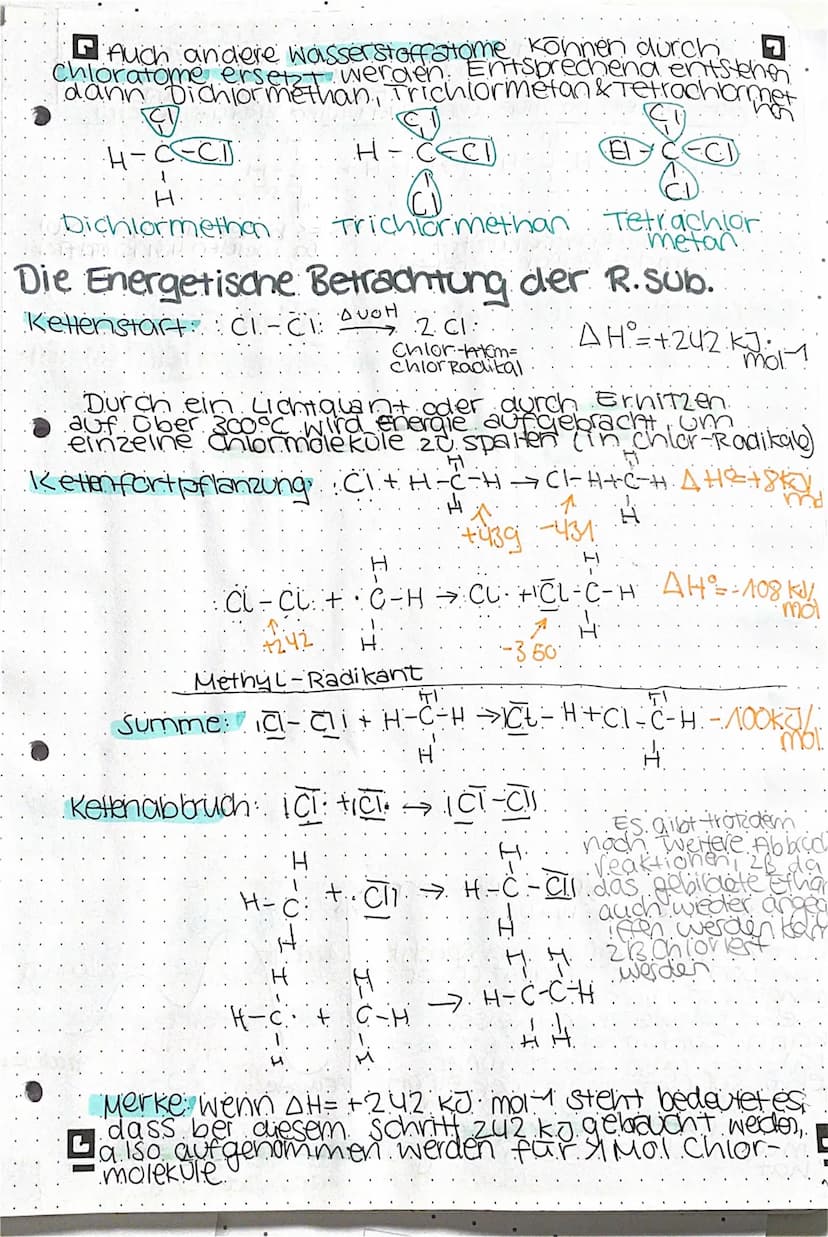 Auch andere Wasserstoffatome können durch
Chloratome ersetzt werden. Entsprechend entstehen
dann Dichlormethan, Trichlormetan & Tetrachlormet
han
Cl Cl Cl
H-C-Cl H-C-Cl Cl-C-Cl
H Cl Cl
Dichlormethan Trichlormethan Tetrachlor
metan
Die Energetische Betrachtung der R.sub.
Kettenstart: Cl-Cl → 2 Cl· ΔH°=+242 kJ·
mol-1
Chlor-Atom=
Chlor Radikal
Durch ein Lichtquant oder durch Erhitzen
auf über 300°C wird energie aufgebracht, um
einzelne Chlormoleküle zu spalten (in Chlor-Radikale)
H H
Kettenfortpflanzung: Cl + H-C-H → Cl-H + C-H ΔH°=+8KJ
mol
H H
+439 -431
H H
Cl-Cl + ·C-H → Cl· + Cl-C-H ΔH°=-108 kJ/
mol
H H
+242 -350
Methyl-Radikant
H H
Summe: |Cl-Cl| + H-C-H → |Cl-H + Cl-C-H -100KJ/
mol
H H
Kettenabbruch: |Cl· + |Cl· → |Cl-Cl|
Es gibt trotzdem
noch weitere Abbruch
reaktionen, zB da
das gebildete Etha
auch wieder angeg
iffen werden kann
zB Chloriert
werden
H H
H-C· + ·Cl| → H-C-Cl|
H H
H H H H
H-C· + ·C-H → H-C-C-H
H H H H
Merke: wenn ΔH= +242 KJ· mol-1 steht bedeutet es,
dass bei diesem Schritt 242 kJ gebraucht werden,
also aufgenommen werden für 1 Mol Chlor-
moleküle.